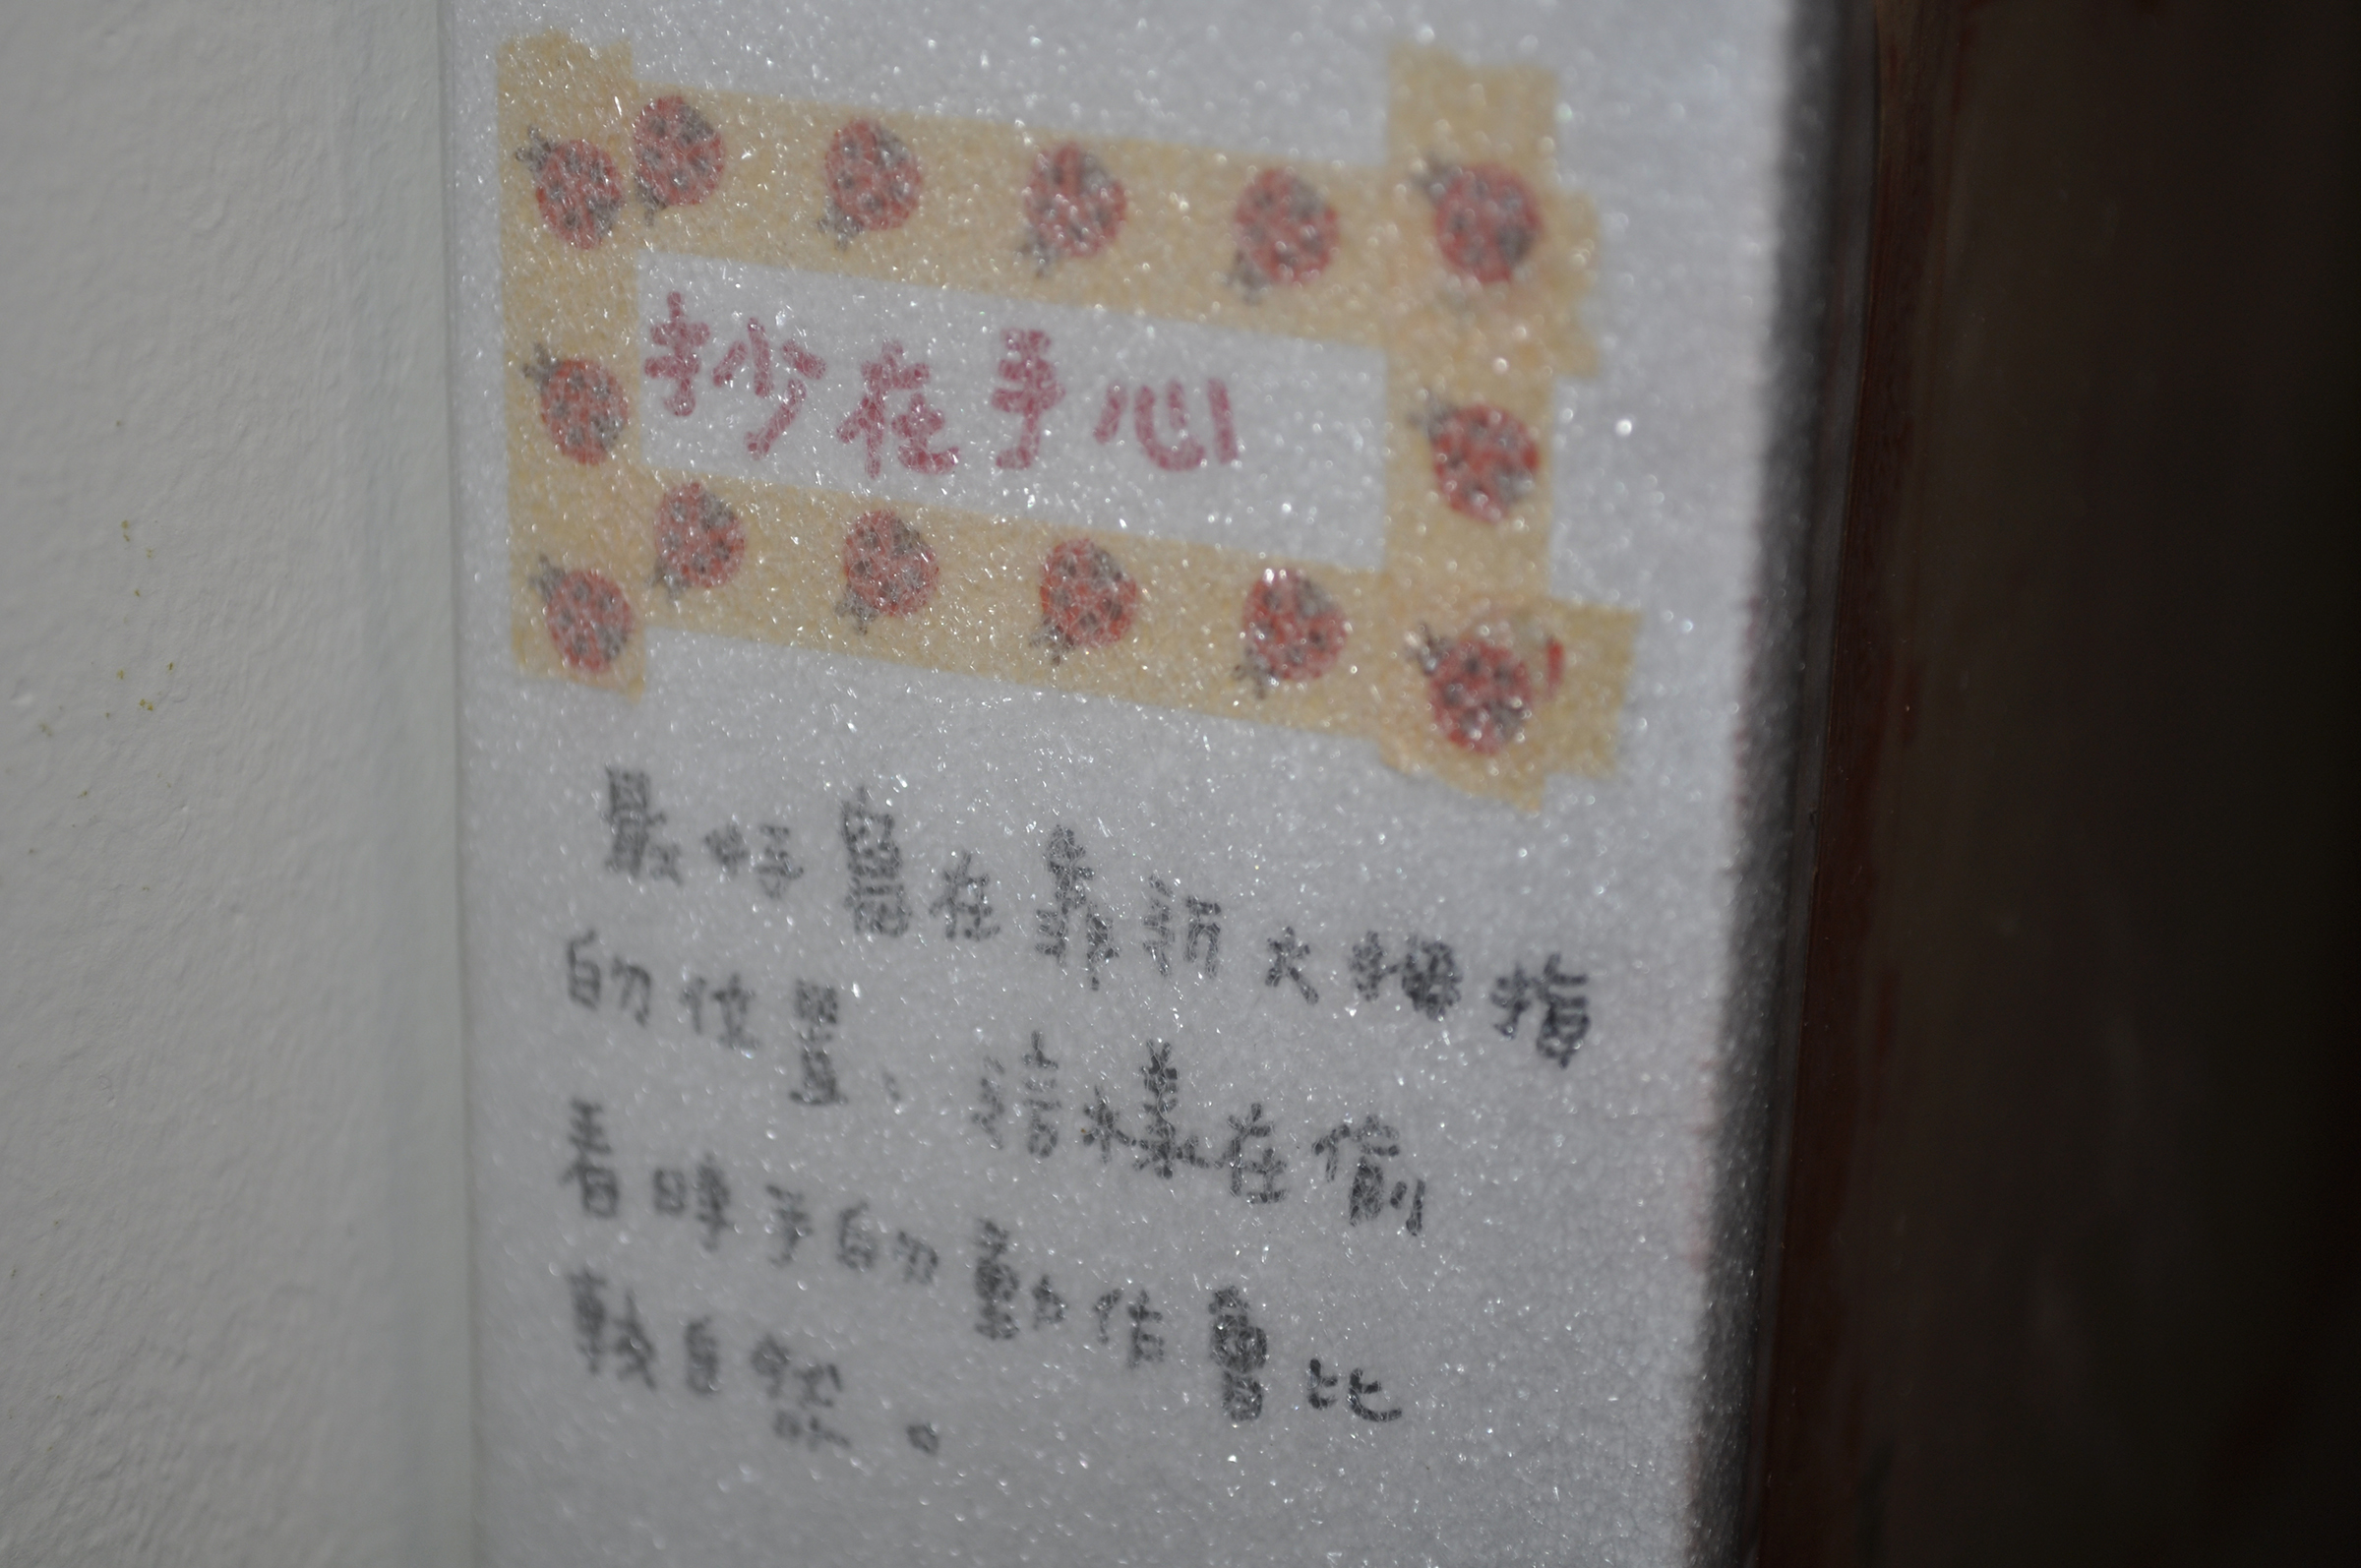 抄在手心
最好寫在靠近大拇指
的位置、這樣在偷
看時手的動作會比
較自然。